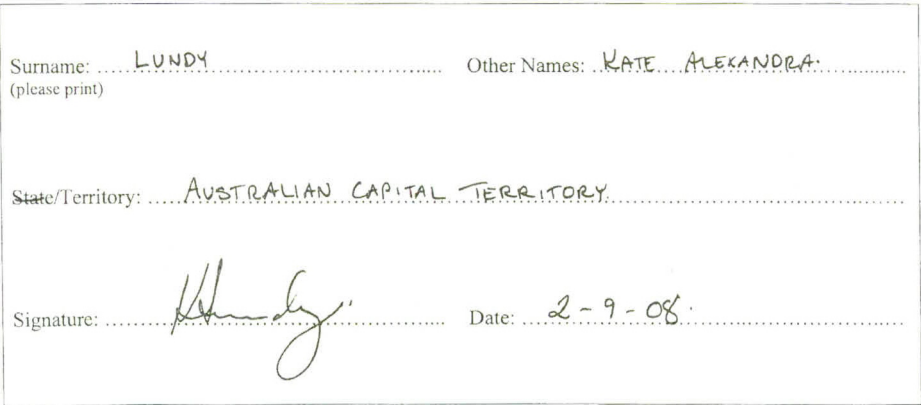 Surname: ..... LUNDY ..... Other Names: KATE ALEXANDRA.
(please print)
State/Territory: ..... AUSTRALIAN CAPITAL TERRITORY.
Signature: ..... KLundy. ..... Date: 2-9-08.